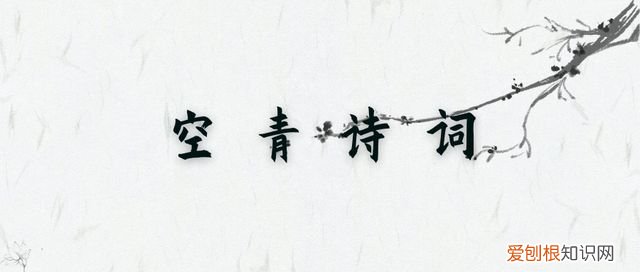 空青诗词
爱刨根知识网